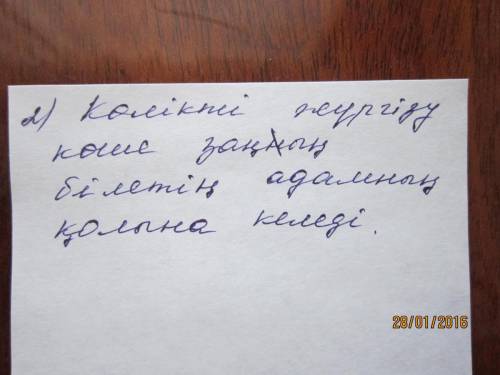 2) Көлікті жүргізу
көше заңның
білетің адамның
қолына келеді.
28/01/2016